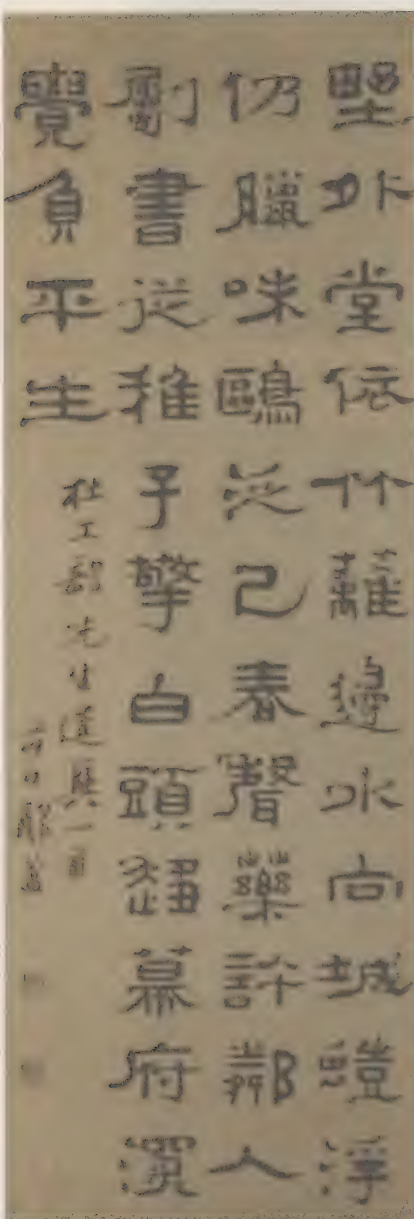 墅外堂依竹籬邊水向城螘浮
仍臘味鷗泛已春聲藥許鄰人
劚書從稚子擎白頭趨幕府深
覺負平生
杜工部先生遣興一首